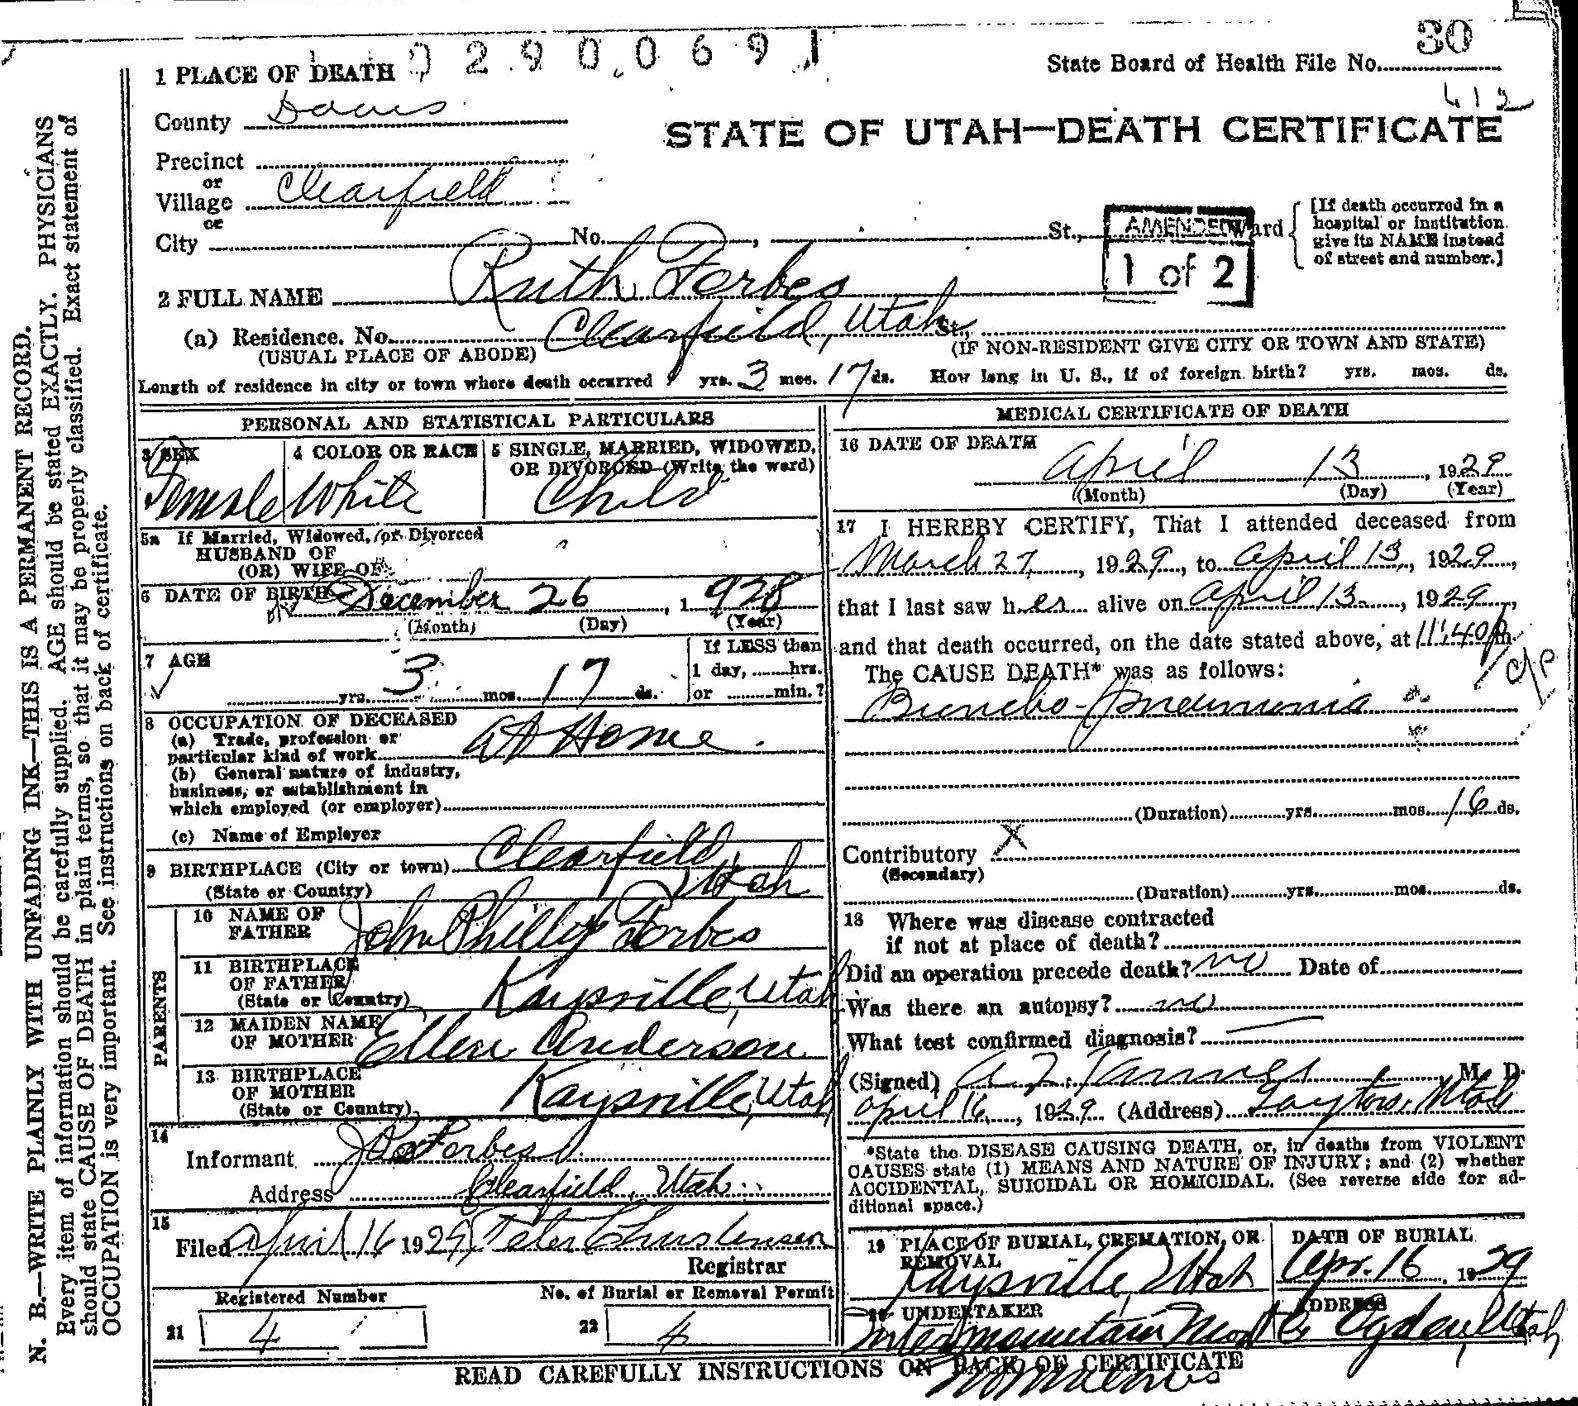 30
0290069 1
State Board of Health File No.
412
STATE OF UTAH—DEATH CERTIFICATE
1 PLACE OF DEATH
County Davis
Precinct
or
Village Clearfield
or
City No. , St., Ward
[If death occurred in a hospital or institution give its NAME instead of street and number.]
AMENDED
1 of 2
2 FULL NAME Ruth Forbes
(a) Residence. No. Clearfield, Utah St.,
(USUAL PLACE OF ABODE) (IF NON-RESIDENT GIVE CITY OR TOWN AND STATE)
Length of residence in city or town where death occurred yrs. 3 mos. 17 ds. How long in U. S., if of foreign birth? yrs. mos. ds.
PERSONAL AND STATISTICAL PARTICULARS
3 SEX
Female
4 COLOR OR RACE
White
5 SINGLE, MARRIED, WIDOWED, OR DIVORCED (Write the word)
Child
5a If Married, Widowed, or Divorced
HUSBAND OF
(OR) WIFE OF
6 DATE OF BIRTH December 26, 1928
(Month) (Day) (Year)
7 AGE
yrs. 3 mos. 17 ds.
If LESS than
1 day, hrs.
or min.?
8 OCCUPATION OF DECEASED
(a) Trade, profession or
particular kind of work at Home
(b) General nature of industry,
business, or establishment in
which employed (or employer)
(c) Name of Employer
9 BIRTHPLACE (City or town) Clearfield,
(State or Country) Utah
PARENTS
10 NAME OF FATHER John Phillip Forbes
11 BIRTHPLACE OF FATHER (State or Country) Kaysville, Utah
12 MAIDEN NAME OF MOTHER Ellen Anderson
13 BIRTHPLACE OF MOTHER (State or Country) Kaysville, Utah
14
Informant Forbes
Address Clearfield, Utah
15
Filed April 16 1929, Peter Christensen
Registrar
Registered Number
21 4
No. of Burial or Removal Permit
22 4
MEDICAL CERTIFICATE OF DEATH
16 DATE OF DEATH
April 13, 1929
(Month) (Day) (Year)
17 I HEREBY CERTIFY, That I attended deceased from
March 27, 1929, to April 13, 1929,
that I last saw her alive on April 13, 1929,
and that death occurred, on the date stated above, at 11:40 P m.
The CAUSE DEATH* was as follows:
Broncho-pneumonia
(Duration) yrs. mos. 16 ds.
Contributory X
(Secondary)
(Duration) yrs. mos. ds.
18 Where was disease contracted
if not at place of death?
Did an operation precede death? no Date of
Was there an autopsy? no
What test confirmed diagnosis?
(Signed) A Z Tanner M. D.
April 16, 1929 (Address) Layton, Utah
*State the DISEASE CAUSING DEATH, or, in deaths from VIOLENT
CAUSES state (1) MEANS AND NATURE OF INJURY; and (2) whether
ACCIDENTAL, SUICIDAL OR HOMICIDAL. (See reverse side for ad-
ditional space.)
19 PLACE OF BURIAL, CREMATION, OR REMOVAL
Kaysville, Utah
DATE OF BURIAL
Apr. 16, 1929
20 UNDERTAKER
Intermountain Mort Co
ADDRESS
Ogden, Utah
READ CAREFULLY INSTRUCTIONS ON BACK OF CERTIFICATE
N. B.—WRITE PLAINLY WITH UNFADING INK—THIS IS A PERMANENT RECORD.
Every item of information should be carefully supplied. AGE should be stated EXACTLY. PHYSICIANS
should state CAUSE OF DEATH in plain terms, so that it may be properly classified. Exact statement of
OCCUPATION is very important. See instructions on back of certificate.